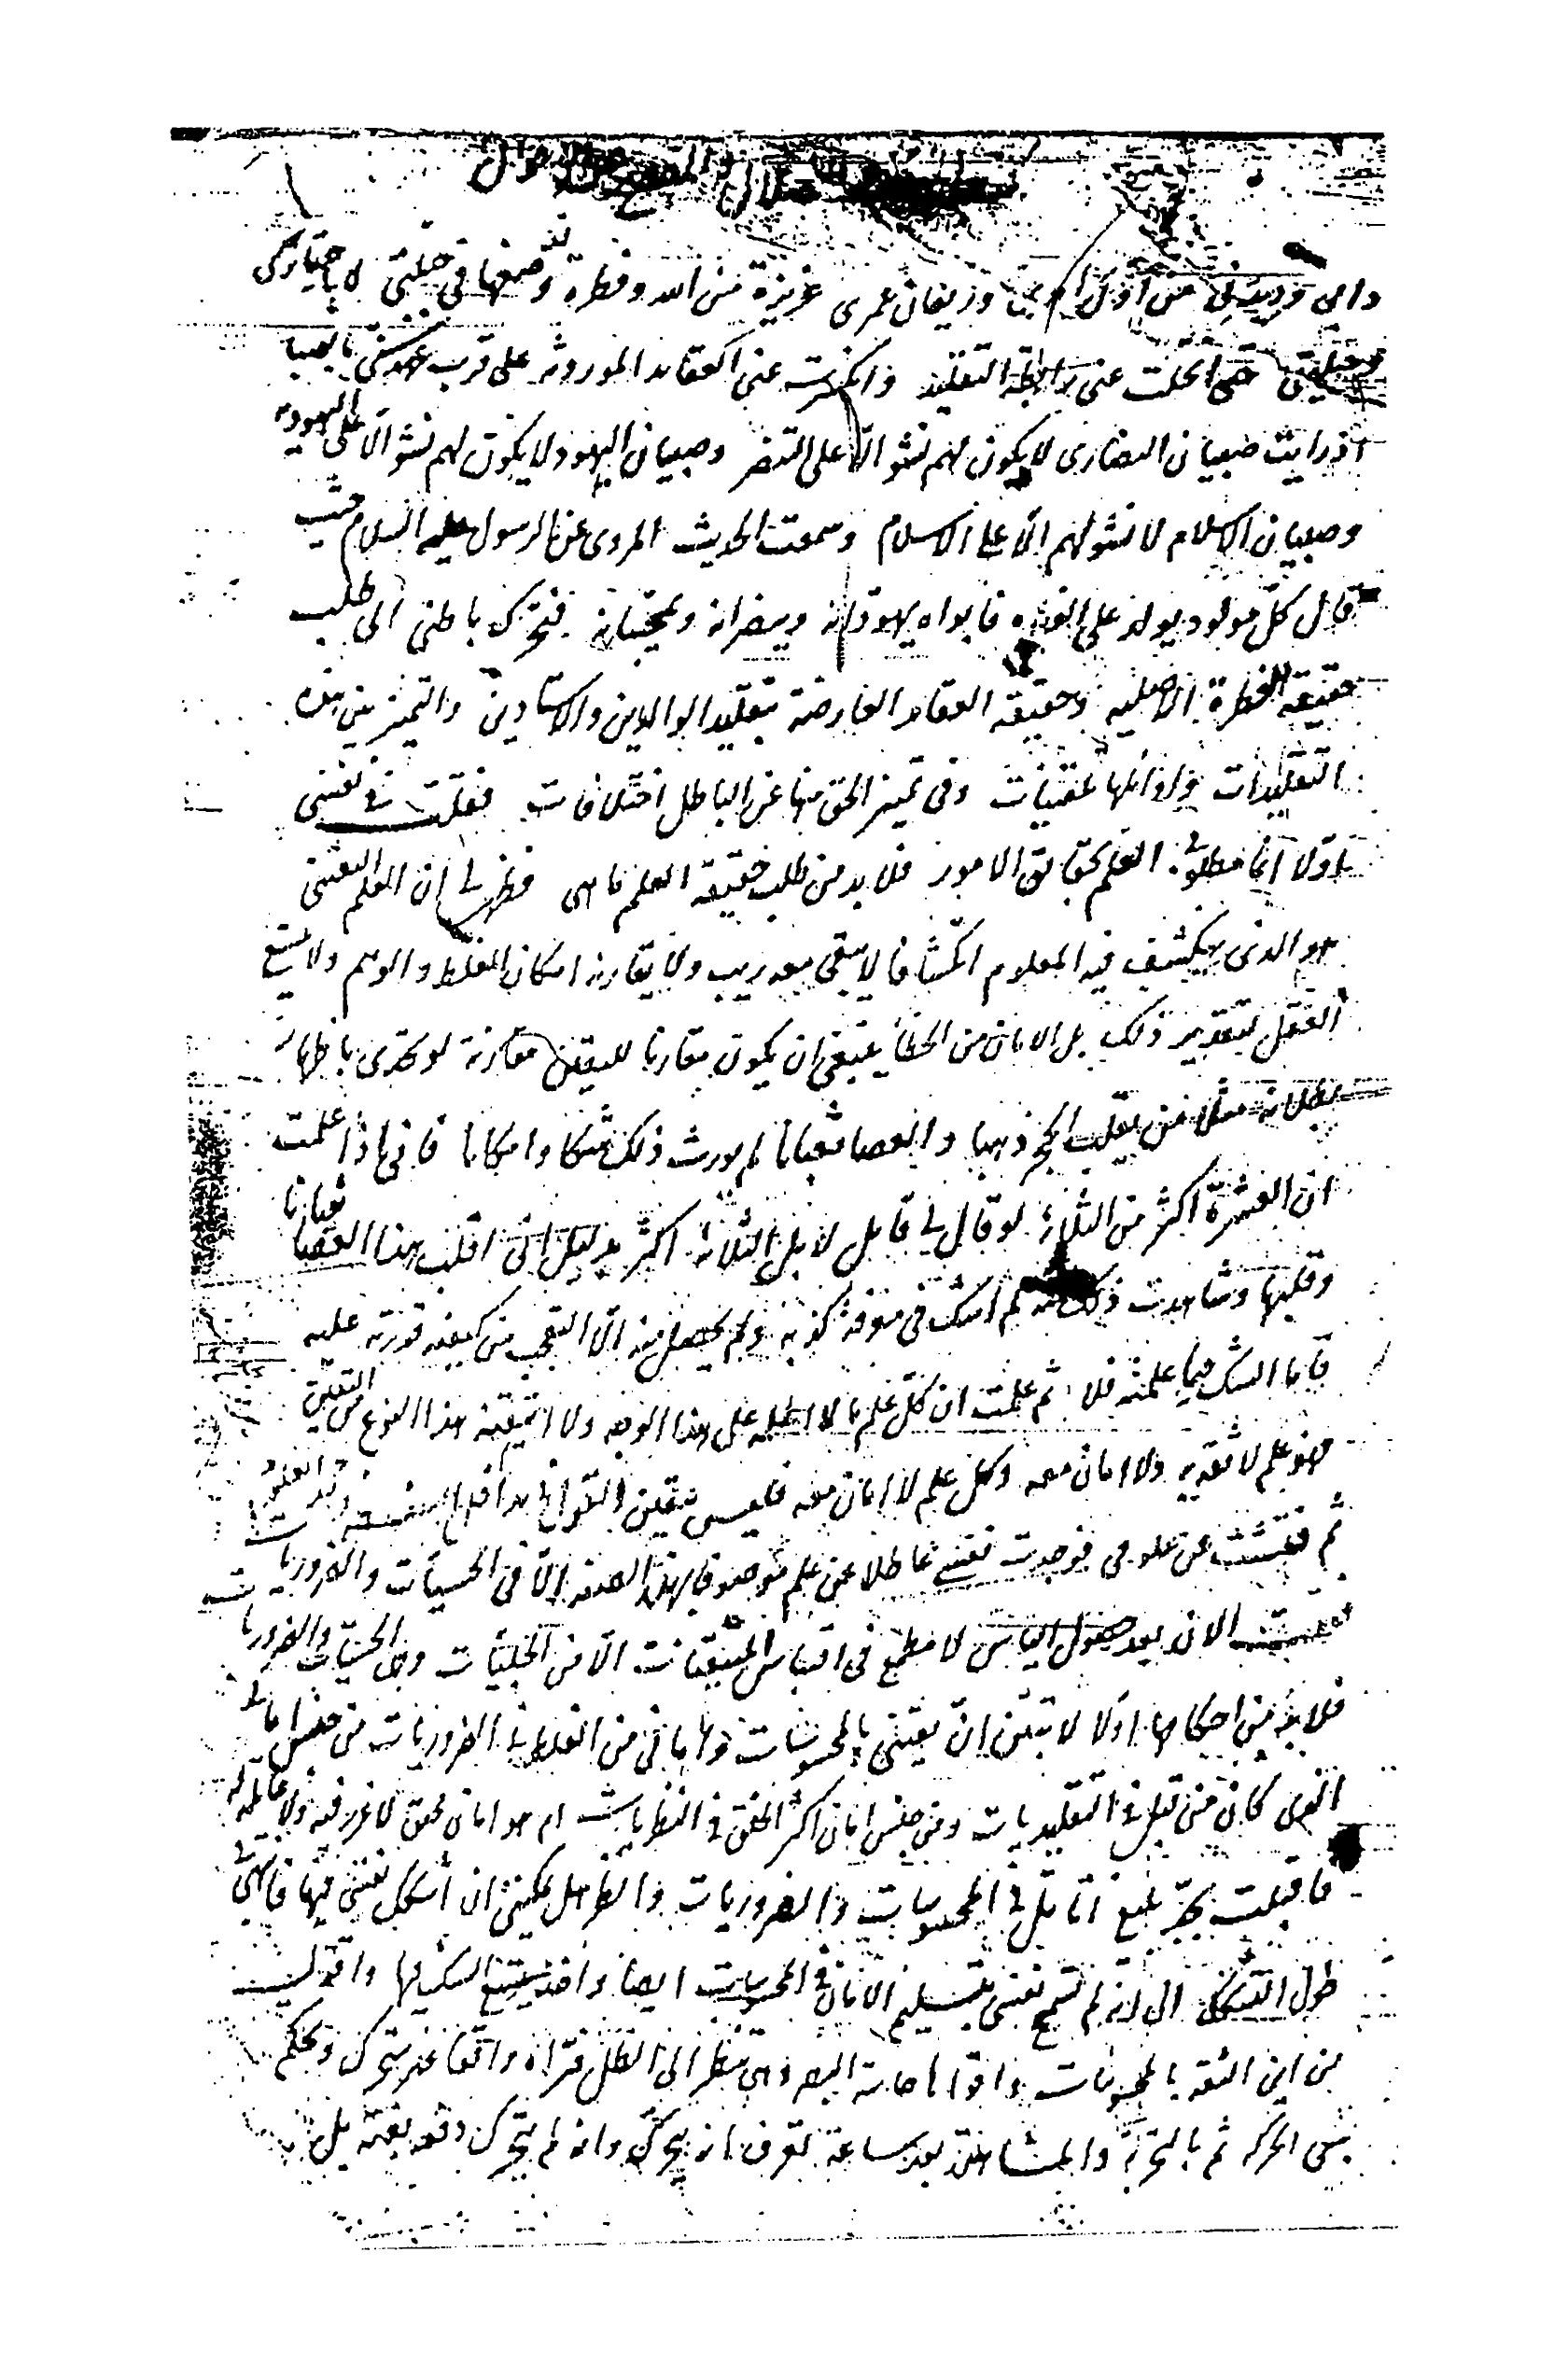 دابى وديدنى من اول امرى وريعان عمرى غريزة من الله وفطرة وضعها فى جبلتى لا باختيارى
وحيلتى حتى انحلت عنى رابطة التقليد وانكسرت عنى العقايد الموروثه على قرب عهد سنى بالصبا
اذ رايت صبيان النصارى لا يكون لهم نشو الا على التنصر وصبيان اليهود لا يكون لهم نشو الا على اليهود
وصبيان الاسلام لا نشو لهم الا على الاسلام وسمعت الحديث المروى عن الرسول عليه السلام حيث
قال كل مولود يولد على الفطره فابواه يهودانه وينصرانه ويمجسانه فتحرك باطنى الى طلب
حقيقه الفطرة الاصليه وحقيقه العقايد العارضة بتقليد الوالدين والاستادين والتميز بين هذه
التقليدات واوائلها تلقينات وفى تميز الحق منها عن الباطل اختلافات فقلت فى نفسى
اولا انما مطلوبى العلم بحقايق الامور فلا بد من طلب حقيقه العلم ما هى فظهر لى ان العلم اليقينى
هو الذى ينكشف فيه المعلوم انكشافا لا يبقى معه ريب ولا يقارنه امكان الغلط والوهم ولا يتسع
العقل لتقدير ذلك بل الامان من الخطا ينبغى ان يكون مقارنا لليقين مقارنة لو تحدى باظهار
بطلانه مثلا من يقلب الحجر ذهبا والعصا ثعبانا لم يورث ذلك شكا وامكانا فانى اذا علمت
ان العشرة اكثر من الثلاثه لو قال لى قايل لا بل الثلاثه اكثر بدليل انى اقلب هذا العصا ثعبانا
وقلبها وشاهدت ذلك منه لم اشك فى معرفة كذبه ولم يحصل منه الا التعجب من كيفيه قدرته عليه
فاما الشك فيما علمته فلا ثم علمت ان كل علم ما لا اعلمه على هذا الوجه ولا اتيقنه هذا النوع من اليقين
فهو علم لا ثقه به ولا امان معه وكل علم لا امان معه فليس بيقين القول فى مداخل السفسطه وجحد العلوم
ثم فتشت عن علومى فوجدت نفسى عاطلا عن علم موصوف بهذه الصفه الا فى الحسيات والضروريات
فقلت الان بعد حصول الياس لا مطمع فى اقتباس المتيقنات الا من الجليات وهى الحسيات والضروريات
فلا بد من احكامها اولا لاتيقن ان يقينى بالمحسوسات وامانى من الغلط فى الضروريات من جنس امانى
الذى كان من قبل فى التقليديات ومن جنس امان اكثر الخلق فى النظريات ام هو امان محقق لا غرر فيه ولا غايلة له
فاقبلت بجد بليغ اتامل فى المحسوسات والضروريات وانظر هل يمكننى ان اشكك نفسى فيها فانتهى بى
طول التشكك الى انه لم تسمح نفسى بتسليم الامان فى المحسوسات ايضا واخذ يتسع الشك فيها
من اين الثقه بالمحسوسات واقواها حاسة البصر وهى تنظر الى الظل فتراه واقفا غير متحرك وتحكم
بنفى الحركه ثم بالتجربة والمشاهدة بعد ساعة تعرف انه يتحرك وانه لم يتحرك دفعه بغته بل